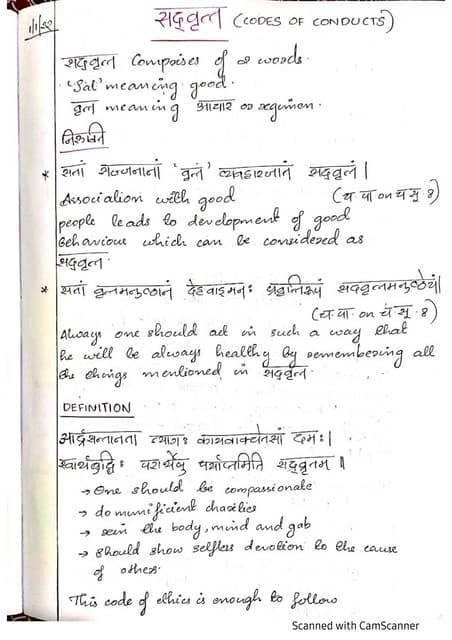 1/1/22
सद्वृत्त (CODES OF CONDUCTS)
सद्वृत्त Comprises of 2 words.
'Sat' meaning good.
वृत्त meaning आचार or regimen.
निरुक्ति
* सतां सज्जनानां 'वृत्तं' व्यवहारजातं सद्वृत्तं |
Association with good (च पा on च सू 8)
people leads to development of good
Behaviour which can be considered as
सद्वृत्त.
* सतां वृत्तमनुष्ठानं देहवाङ्मनः प्रवृत्तिरूपं सद्वृत्तमनुष्ठेयं|
(च. पा. on च. सू. 8)
Always one should act in such a way that
he will be always healthy by remembering all
the things mentioned in सद्वृत्त.
DEFINITION
आर्द्रसन्तानता त्यागः कायवाक्चेतसां दमः |
स्वार्थबुद्धिः परार्थेषु पर्याप्तमिति सद्वृतम् ॥
→ One should be compassionate
→ do munificient charities
→ rein the body, mind and gab
→ should show selfless devotion to the cause
of others.
This code of ethics is enough to follow
Scanned with CamScanner